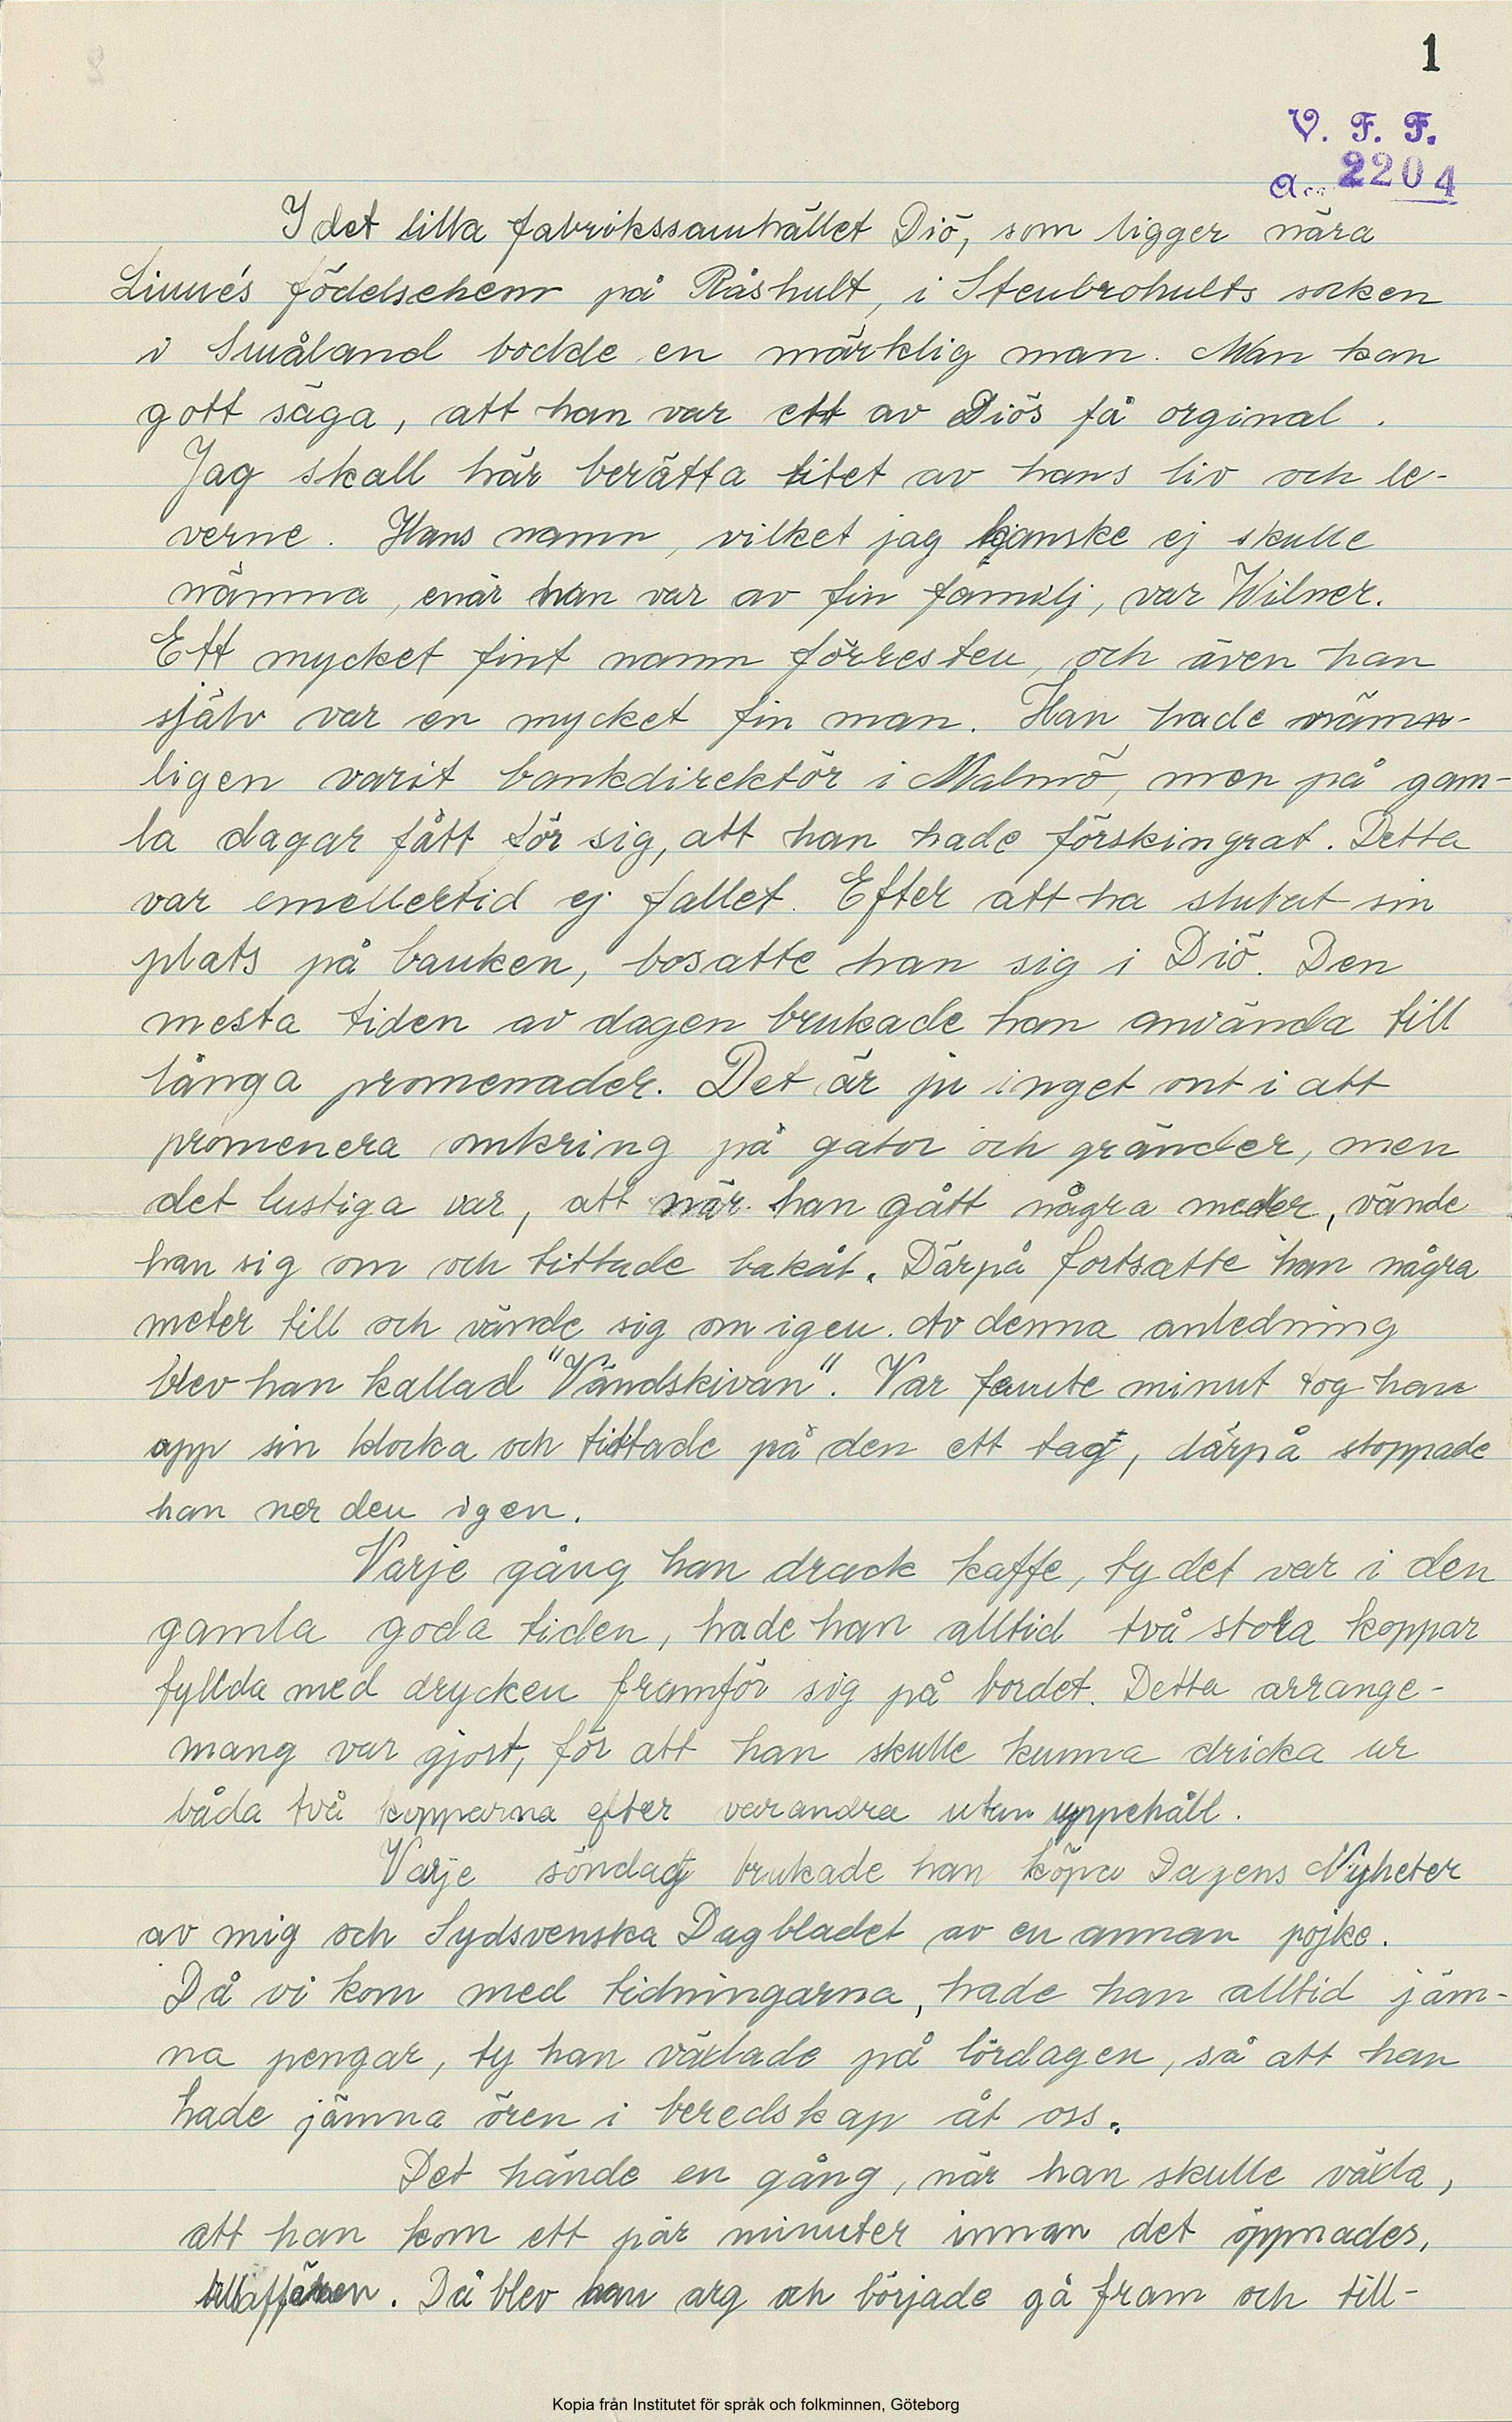 1
V. F. F.
a... 2204
I det lilla fabrikssamhället Diö, som ligger nära
Linnés födelsehem på Råshult, i Stenbrohults socken
i Småland bodde en märklig man. Man kan
gott säga, att han var ett av Diös få orginal.
Jag skall här berätta litet av hans liv och le-
verne. Hans namn, vilket jag kanske ej skulle
nämna, enär han var av fin familj, var Wilner.
Ett mycket fint namn förresten, och även han
själv var en mycket fin man. Han hade näm-
ligen varit bankdirektör i Malmö, men på gam-
la dagar fått för sig, att han hade förskingrat. Detta
var emellertid ej fallet. Efter att ha slutat sin
plats på banken, bosatte han sig i Diö. Den
mesta tiden av dagen brukade han använda till
långa promenader. Det är ju inget ont i att
promenera omkring på gator och gränder, men
det lustiga var, att när han gått några meter, vände
han sig om och tittade bakåt. Därpå fortsatte han några
meter till och vände sig om igen. Av denna anledning
blev han kallad "Vändskivan". Var femte minut tog han
upp sin klocka och tittade på den ett tag, därpå stoppade
han ner den igen.
Varje gång han drack kaffe, ty det var i den
gamla goda tiden, hade han alltid två stora koppar
fyllda med drycken framför sig på bordet. Detta arrange-
mang var gjort, för att han skulle kunna dricka ur
båda två kopparna efter varandra utan uppehåll.
Varje söndag brukade han köpa Dagens Nyheter
av mig och Sydsvenska Dagbladet av en annan pojke.
Då vi kom med tidningarna, hade han alltid jäm-
na pengar, ty han växlade på lördagen, så att han
hade jämna ören i beredskap åt oss.
Det hände en gång, när han skulle växla,
att han kom ett par minuter innan det öppnades,
till affären. Då blev han arg och började gå fram och till-
Kopia från Institutet för språk och folkminnen, Göteborg